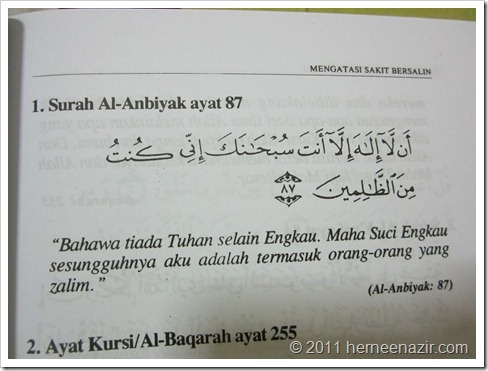 MENGATASI SAKIT BERSALIN
1. Surah Al-Anbiyak ayat 87
أَن لَّآ إِلَٰهَ إِلَّآ أَنتَ سُبْحَٰنَكَ إِنِّى كُنتُ
مِنَ ٱلظَّٰلِمِينَ ٨٧
“Bahawa tiada Tuhan selain Engkau. Maha Suci Engkau
sesungguhnya aku adalah termasuk orang-orang yang
zalim.”
(Al-Anbiyak: 87)
2. Ayat Kursi/Al-Baqarah ayat 255
© 2011 herneenazir.com